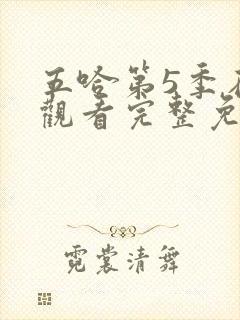 五哈第5季在
觀看完整免
霓裳清舞